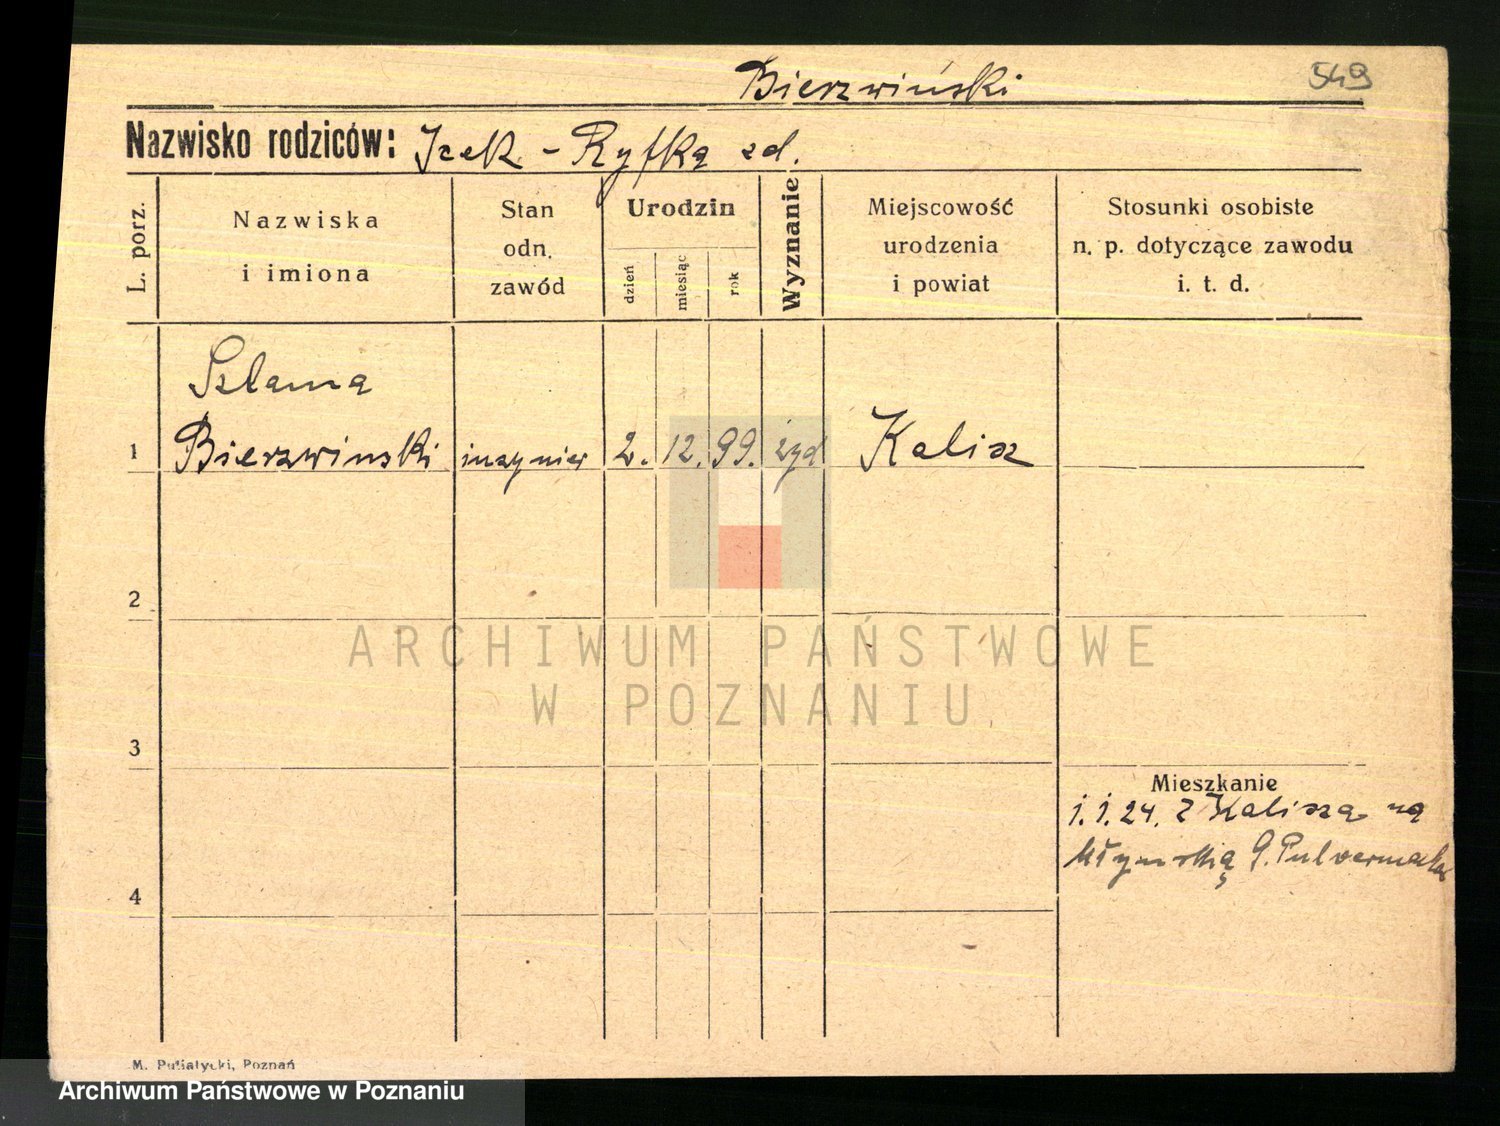 Bierzwiński
549
Nazwisko rodziców: Icek - Ryfka zd.
L. porz.
Nazwiska
i imiona
Stan
odn.
zawód
Urodzin
dzień
miesiąc
rok
Wyznanie
Miejscowość
urodzenia
i powiat
Stosunki osobiste
n. p. dotyczące zawodu
i. t. d.
Szlama
1 Bierzwinski inzynier 2. 12. 99. żyd Kalisz
2
3
4
Mieszkanie
1.1.24. z Kalisza na
Młynską 9. Pulvermacher
ARCHIWUM PAŃSTWOWE
W POZNANIU
M. Putiatycki, Poznań
Archiwum Państwowe w Poznaniu